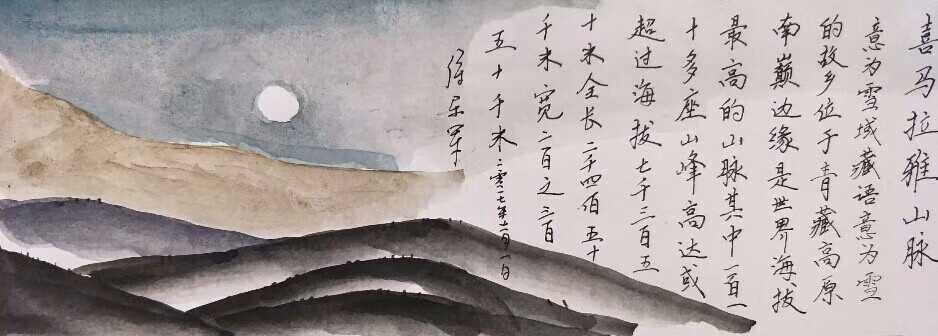 喜马拉雅山脉
意为雪域藏语意为雪
的故乡位于青藏高原
南巅边缘是世界海拔
最高的山脉其中一百一
十多座山峰高达或
超过海拔七千三百五
十米全长二千四佰五十
千米宽二百之三百
五十千米二零一七年六月一日